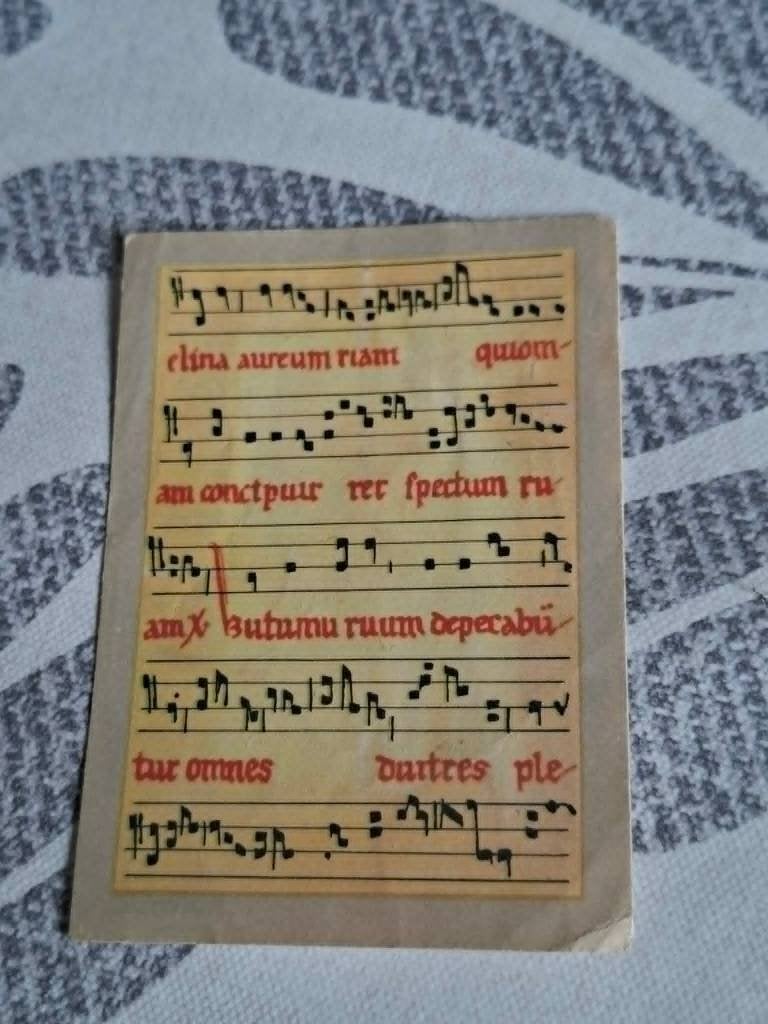 elina aureum riam quiom-
am conctpuir rer spectum ru
am X Butumu ruum depecabü
tur omnes duitres ple-